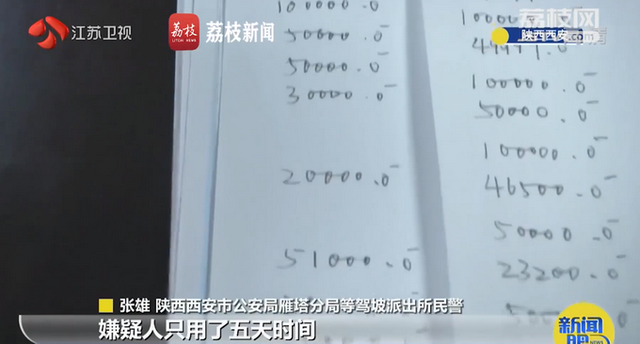 江苏卫视
荔枝
荔枝新闻
荔枝网
陕西西安
100000.0
50000.0
50000.0
30000.0
20000.0
51000.0
100000
100000.0
50000.0
100000.0
46500.0
50000.0
23200.0
张雄 陕西西安市公安局雁塔分局等驾坡派出所民警
嫌疑人只用了五天时间
新闻